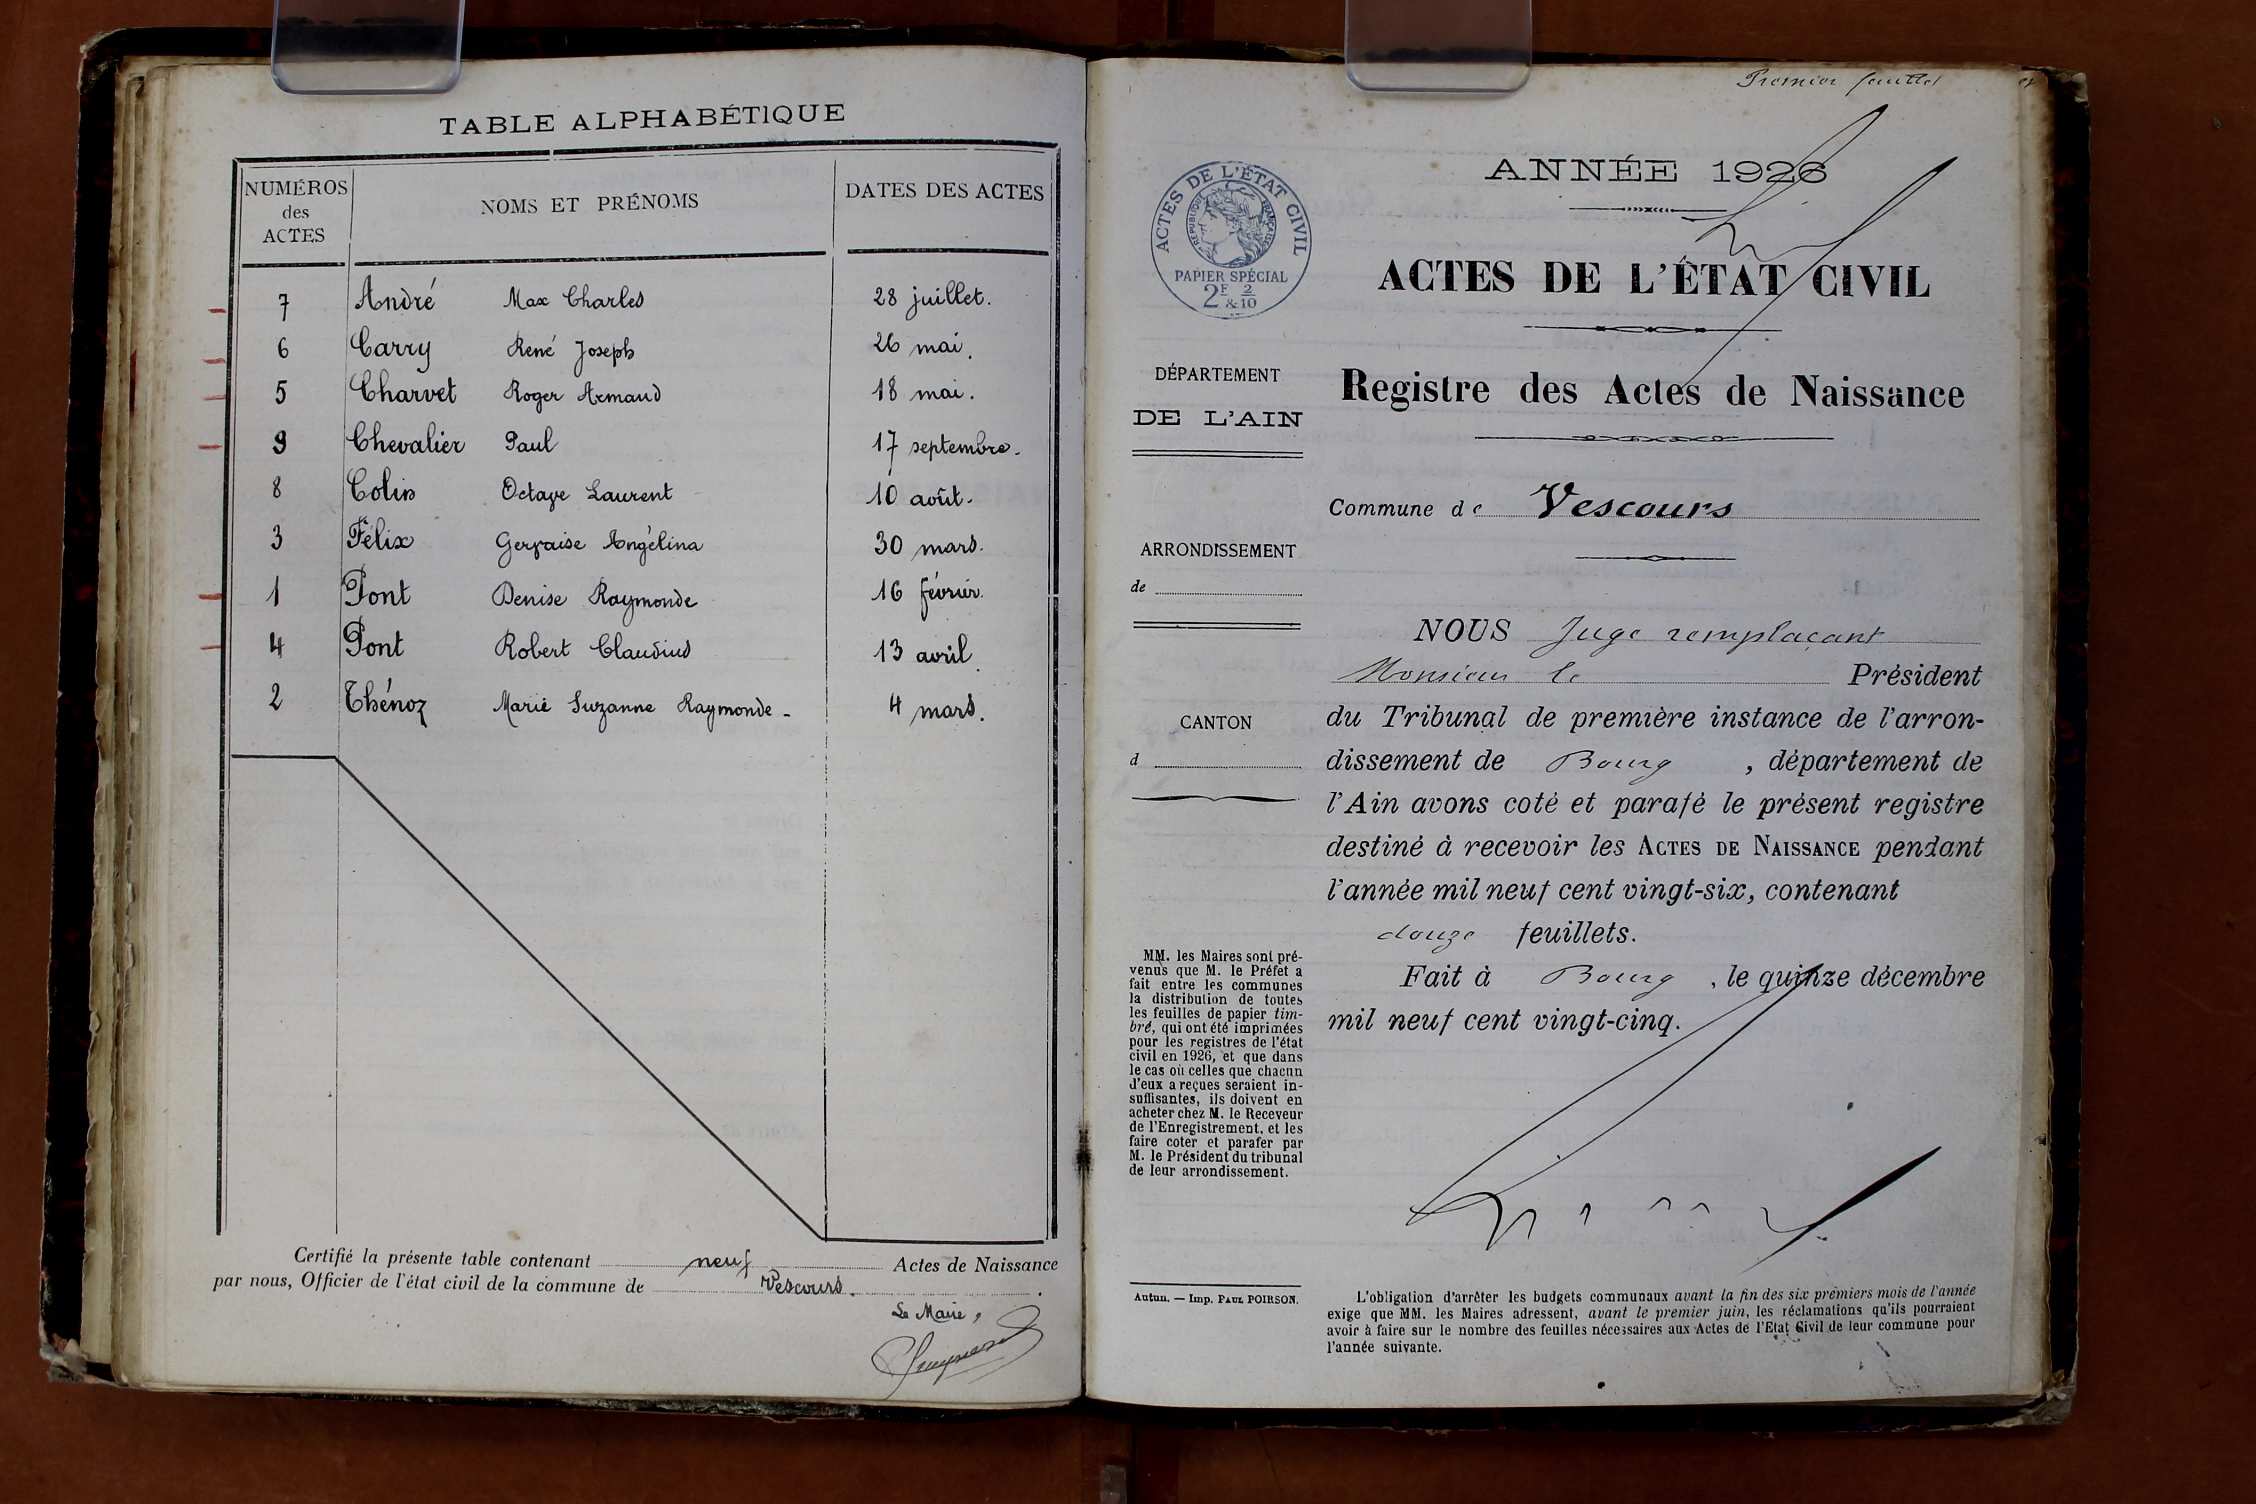 TABLE ALPHABÉTIQUE
NUMÉROS des ACTES NOMS ET PRÉNOMS DATES DES ACTES
7 André Max Charles 28 juillet.
6 Carry René Joseph 26 mai.
5 Charvet Roger Armand 18 mai.
9 Chevalier Paul 17 septembre.
8 Colin Octave Laurent 10 août.
3 Félix Gervaise Angélina 30 mars.
1 Pont Denise Raymonde 16 février.
4 Pont Robert Claudius 13 avril.
2 Thénoz Marie Suzanne Raymonde - 4 mars.
Certifié la présente table contenant neuf Actes de Naissance
par nous, Officier de l'état civil de la commune de Vescours.
Le Maire,
Premier feuillet
ACTES DE L'ÉTAT CIVIL
RÉPUBLIQUE FRANÇAISE
PAPIER SPÉCIAL
2F & 2/10
DÉPARTEMENT
DE L'AIN
ARRONDISSEMENT
de
CANTON
d
MM. les Maires sont pré-
venus que M. le Préfet a
fait entre les communes
la distribution de toutes
les feuilles de papier tim-
bré, qui ont été imprimées
pour les registres de l'état
civil en 1926, et que dans
le cas où celles que chacun
d'eux a reçues seraient in-
suffisantes, ils doivent en
acheter chez M. le Receveur
de l'Enregistrement, et les
faire coter et parafer par
M. le Président du tribunal
de leur arrondissement.
Autun. — Imp. PAUL POIRSON.
ANNÉE 1926
ACTES DE L'ÉTAT CIVIL
Registre des Actes de Naissance
Commune de Vescours
NOUS Juge remplaçant
Monsieur le Président
du Tribunal de première instance de l'arron-
dissement de Bourg, département de
l'Ain avons coté et parafé le présent registre
destiné à recevoir les ACTES DE NAISSANCE pendant
l'année mil neuf cent vingt-six, contenant
douze feuillets.
Fait à Bourg, le quinze décembre
mil neuf cent vingt-cinq.
L'obligation d'arrêter les budgets communaux avant la fin des six premiers mois de l'année
exige que MM. les Maires adressent, avant le premier juin, les réclamations qu'ils pourraient
avoir à faire sur le nombre des feuilles nécessaires aux Actes de l'Etat Civil de leur commune pour
l'année suivante.